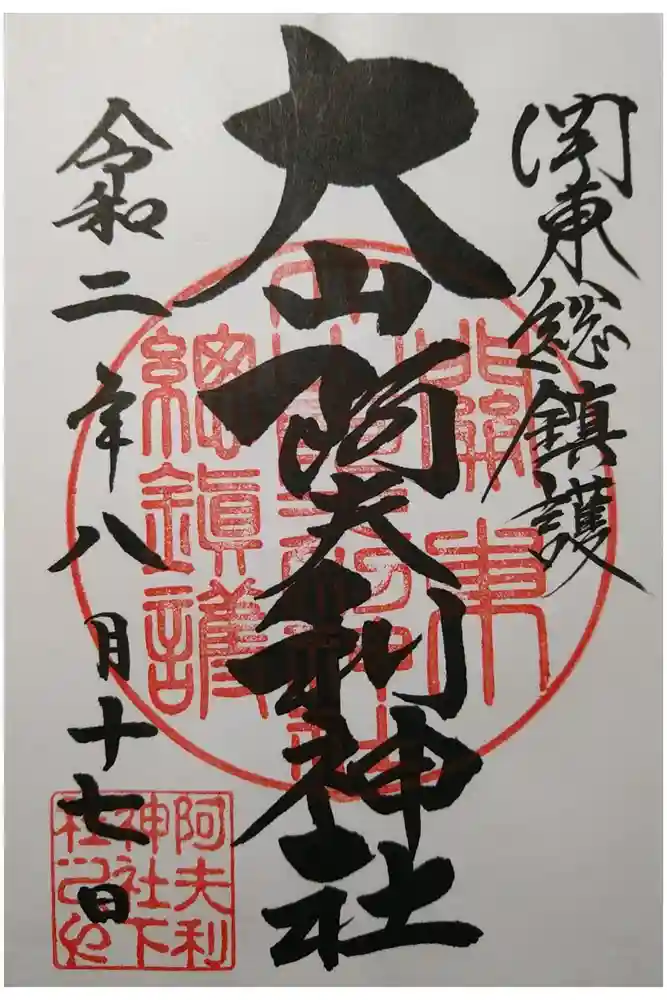 関東総鎮護
大山阿夫利神社
令和二年八月十七日
関東
総鎮護
阿夫利
神社下
社之印